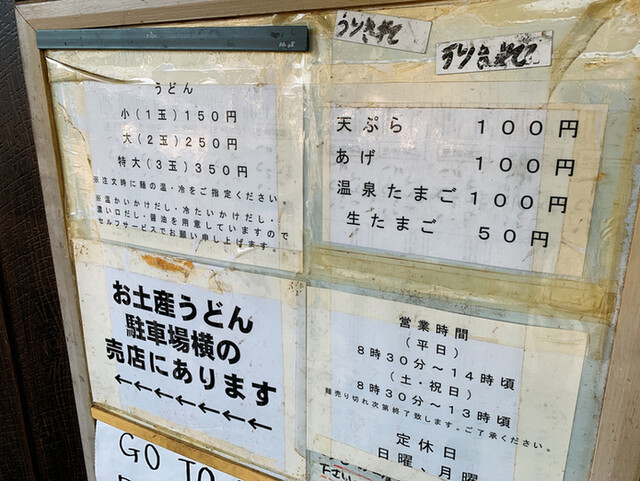 うりきれて
うりきれて
うどん
小(1玉)150円
大(2玉)250円
特大(3玉)350円
※注文時に麺の温・冷をご指定ください。
※温かいかけだし・冷たいかけだし・
濃い口だし・醤油を用意していますので
セルフサービスでお願い申し上げます。
天ぷら 100円
あげ 100円
温泉たまご 100円
生たまご 50円
お土産うどん
駐車場横の
売店にあります
←←←←←←←
営業時間
(平日)
8時30分～14時頃
(土・祝日)
8時30分～13時頃
麺売り切れ次第終了致します。ご了承ください。
定休日
日曜、月曜
GO TO
下さい